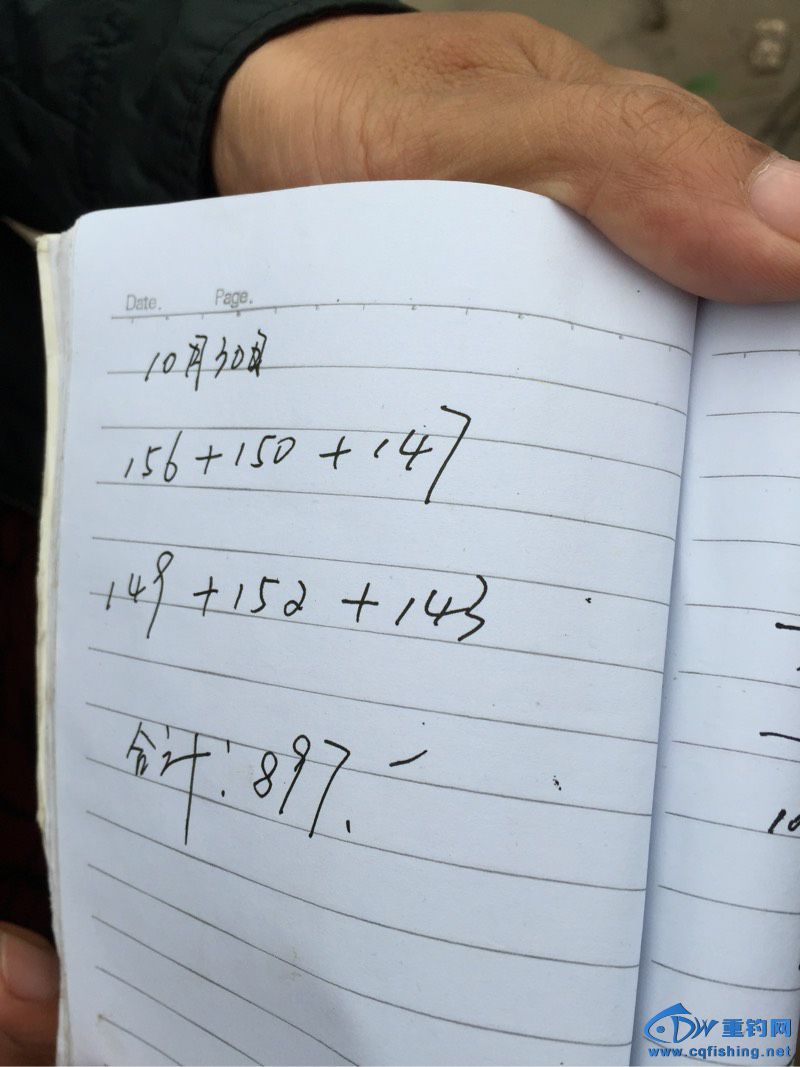 Date. Page.
10月30日
156+150+147
149+152+143
合计:897.
10
DW重钓网
www.cqfishing.net